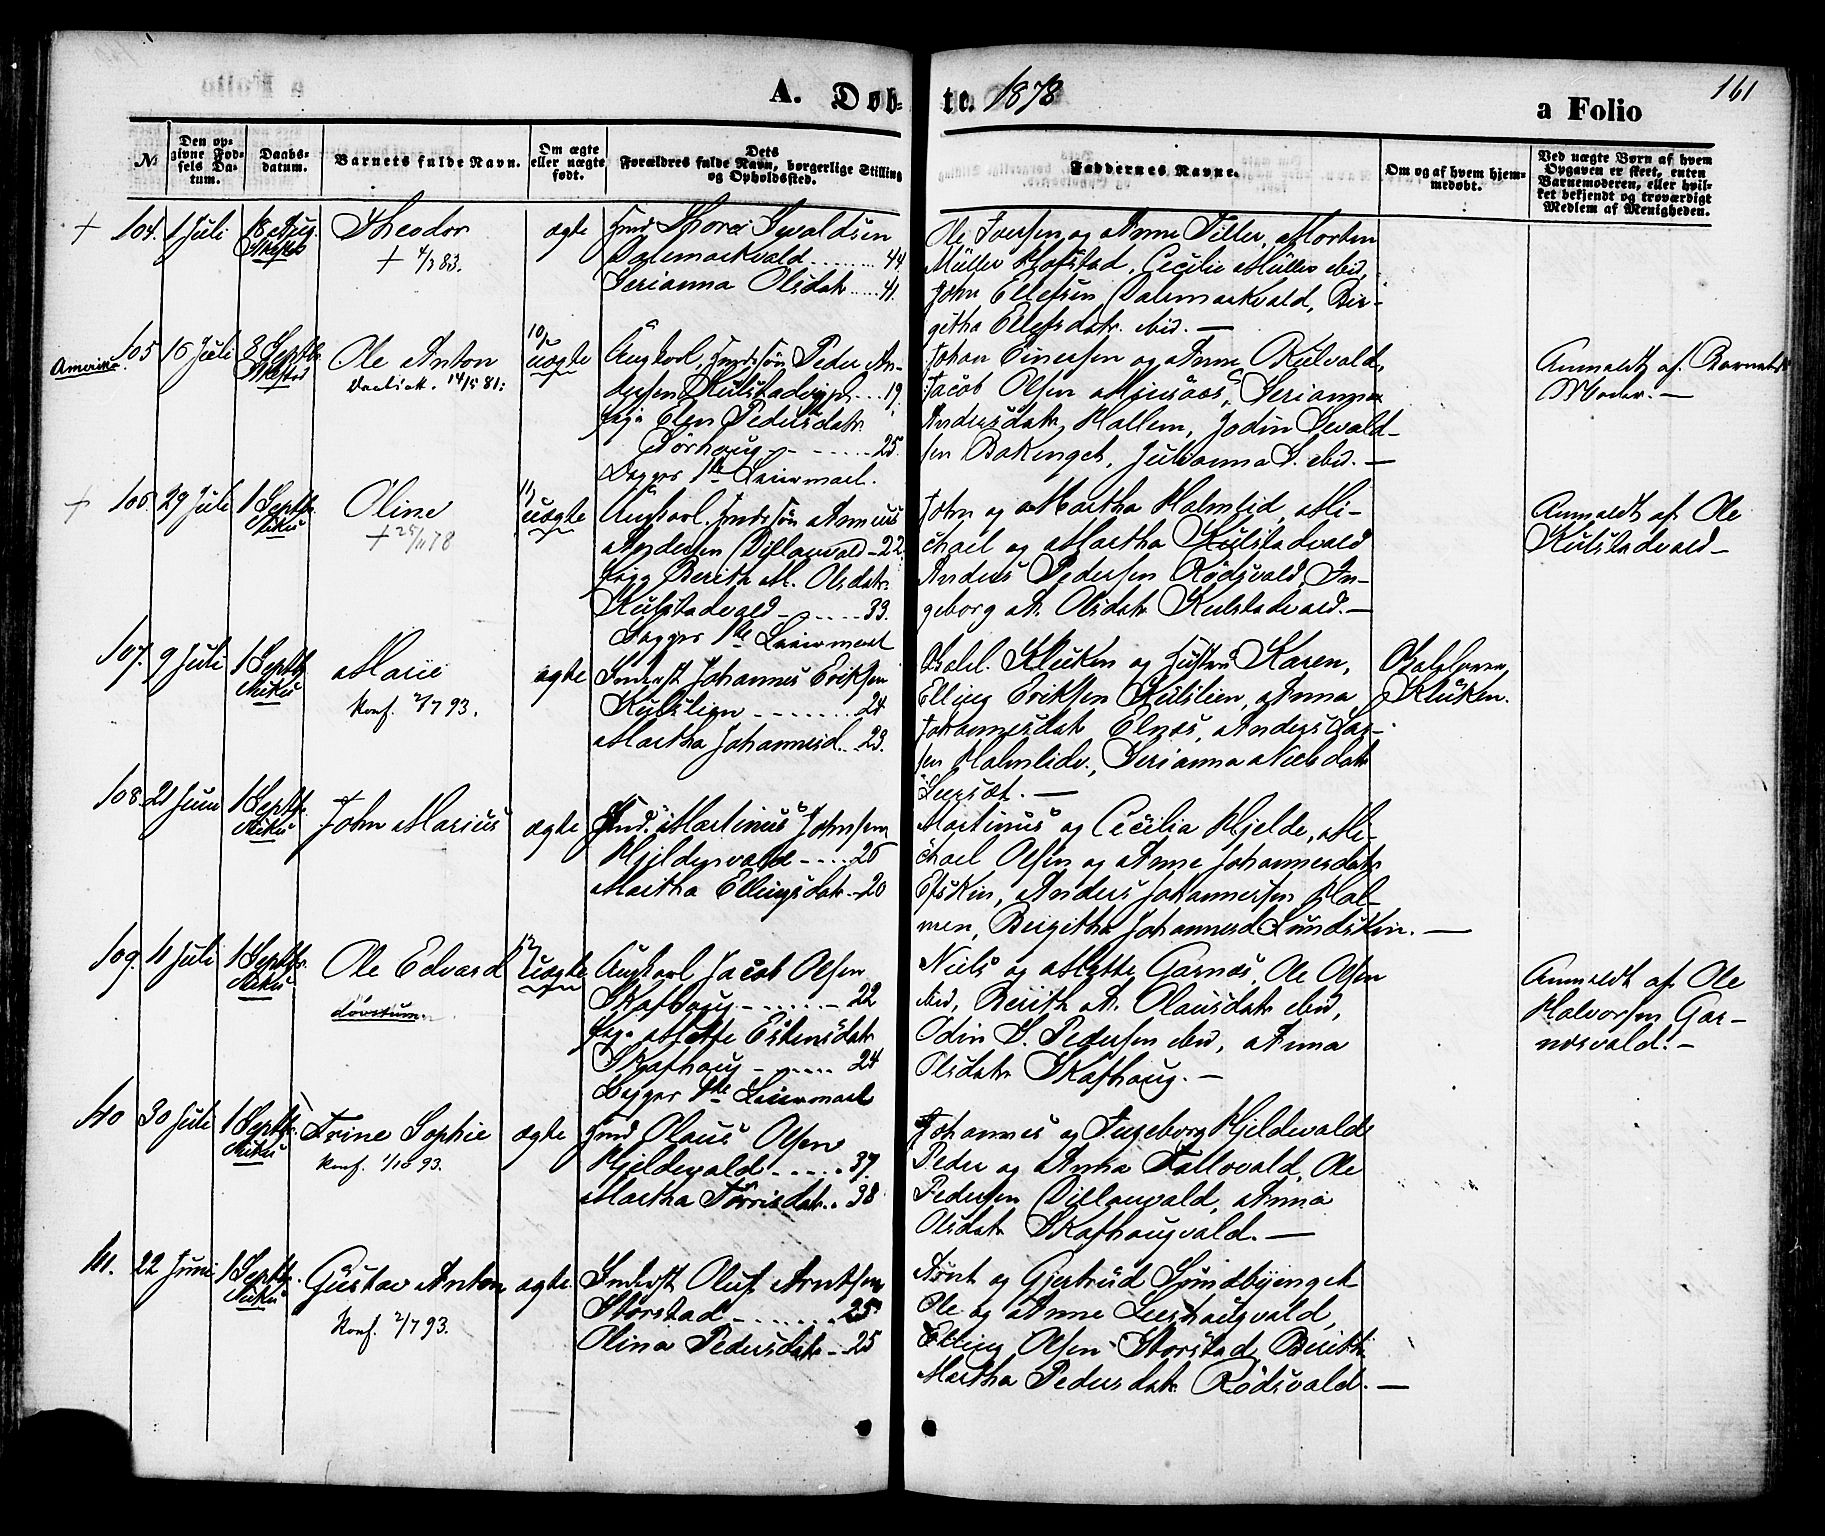 A. Døb-
te. 1878
a Folio
161
№
Den op-
givne Fød-
sels Da-
tum.
Daabs-
datum.
Barnets fulde Navn.
Om ægte
eller uægte
født.
Dets
Forældres fulde Navn, borgerlige Stilling
og Opholdssted.
Faddernes Navne.
Om og af hvem hjem-
medøbt.
Ved uægte Børn af hvem
Opgaven er skeet, enten
Barnemoderen, eller hvil-
ket bekjendt og troværdigt
Medlem af Menigheden.
+ 104. 1 Juli 18 Aug.
Theodor
+ 4/3 83.
ægte
Dalemarkvald 44
Serianna Olsdatr 41.
Ole Iversen og Anne Tiller, Morten
Müller Hofstad, Cecilie Müller ibid,
John Ellefsen Dalemarkvald, Bir-
githa Ellefsdatr. ibid. —
Amerika. 105 16 Juli 8 Septbr.
Ole Anton
14/5 81.
10/
uægte
Ungkarl, Søn Peder An-
dersen 19.
Pige Elen Pedersdatr.
Sørhaug 25.
Begges 1ste Leiermaal.
Johan Einersen og Anne Kulvald,
Jacob Olsen Serianna
Andersdatr. Hallem, Jodin Sevald-
sen Bakenget, Julianna S. ibid. —
Anmeldt af Barnets
Moder. —
+ 106 29 Juli 1 Septbr.
Oline
+ 25/11 78
11/
uægte
Ungkarl, Søn
Andersen Dillanvald 22
Pige Berith M. Olsdatr.
Kulstadvald 33.
Begges 1ste Leiermaal
John og Martha Halmlid, Mi-
chael og Martha Kulstadvald
Anders Pedersen Rødsvald, In-
geborg A. Olsdatr Kulstadvald. —
Anmeldt af Ole
Kulstadvald —
107. 9 Juli 1 Septbr.
Marie
konf. 2/7 93.
ægte
Inderst Johannes Eriksen
Kulslien 24
Martha Johannesd. 23.
Kluken og Hustru Karen,
Elling Eriksen Kulslien, Anna
Johannesdatr Elnæs, Anders Lar-
sen Halmlidv., Serianna Nielsdatr
Leersæt. —
Kluken.
108. 21 Juni 1 Septbr.
John Marius
ægte
Martinus Johnsen
Hjeldesvald 26
Martha Ellingsdatr 20
Martinus og Cecilia Hjelde, Mi-
chael Olsen og Anne Johannesdatr
Efskin, Anders Johannessen Hal-
men, Birgitha Johannesd. Lundskin. —
109. 11 Juli 1 Septbr.
Ole Edvard
døvstum.
12/
uægte
Ungkarl Jacob Olsen
Skafhaug 22
Pige Mette Estensdatr
Skafhaug 24
Begges 1ste Leiermaal
Niels og Mette Garnæs, Ole Olsen
ibid, Berith A. Olausdatr ibid,
Odin S. Pedersen ibid, Anna
Olsdatr Skafhaug. —
Anmeldt af Ole
Halvorsen Gar-
næsvald. —
110 30 Juli 1 Septbr.
Trine Sophie
konf. 1/10 93.
ægte
Olaus Olsen
Hjeldevald 37.
Martha Tørrisdatr. 38
Johannes og Ingeborg Hjeldevald
Peder og Anna Fallovald, Ole
Pedersen Dillanvald, Anna
Olsdatr Skafhaugvald. —
111. 22 Juni 1 Septbr.
Gustav Anton
konf. 2/7 93.
ægte
Inderst Oluf Arntsen
Storstad 25
Olina Pedersdatr 25
Arnt og Gjertrud Sundbyenget
Ole og Anne Leershaugvald,
Elling Olsen Storstad, Berith
Martha Pedersdatr Rødsvald. —